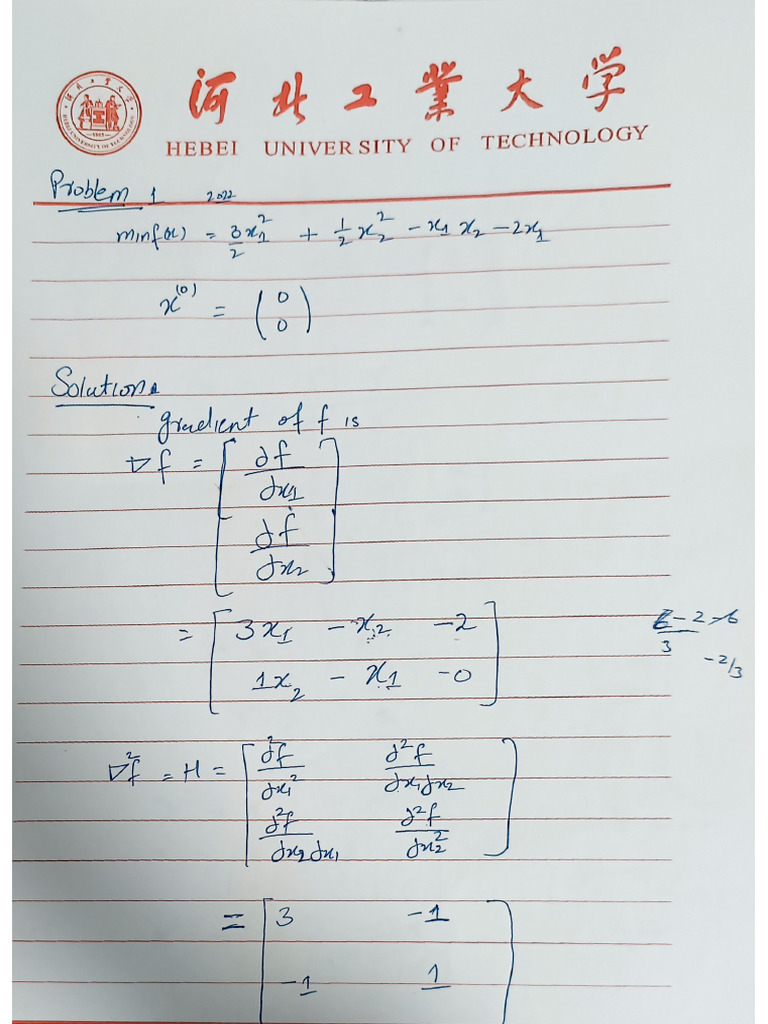 河北工业大学
HEBEI UNIVERSITY OF TECHNOLOGY
Problem 1 2022
minf(x) = 3/2 x₁² + 1/2 x₂² - x₁ x₂ - 2x₁
x⁽⁰⁾ = (0
0)
Solution
gradient of f is
∇f = [ ∂f/∂x₁
∂f/∂x₂ ]
= [ 3x₁ - x₂ - 2
1x₂ - x₁ - 0 ]
-2/3
∇²f = H = [ ∂²f/∂x₁² ∂²f/∂x₁∂x₂
∂²f/∂x₂∂x₁ ∂²f/∂x₂² ]
= [ 3 -1
-1 1 ]